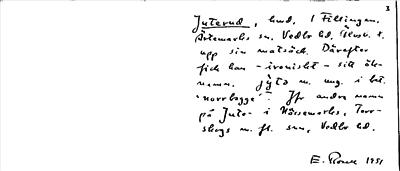 3
Juterud, hmd. i Fillingen,
Ärtemarks sn. Vedbo hd. Åt
upp sin matsäck. Därefter
fick han – ironiskt – sitt ök-
namn. jyta m. ung. i bet.
"norrbagge". Jfr andra namn
på Jute- i Håbol, Torr-
skogs m. fl. snr, Vedbo hd.
E. 1951